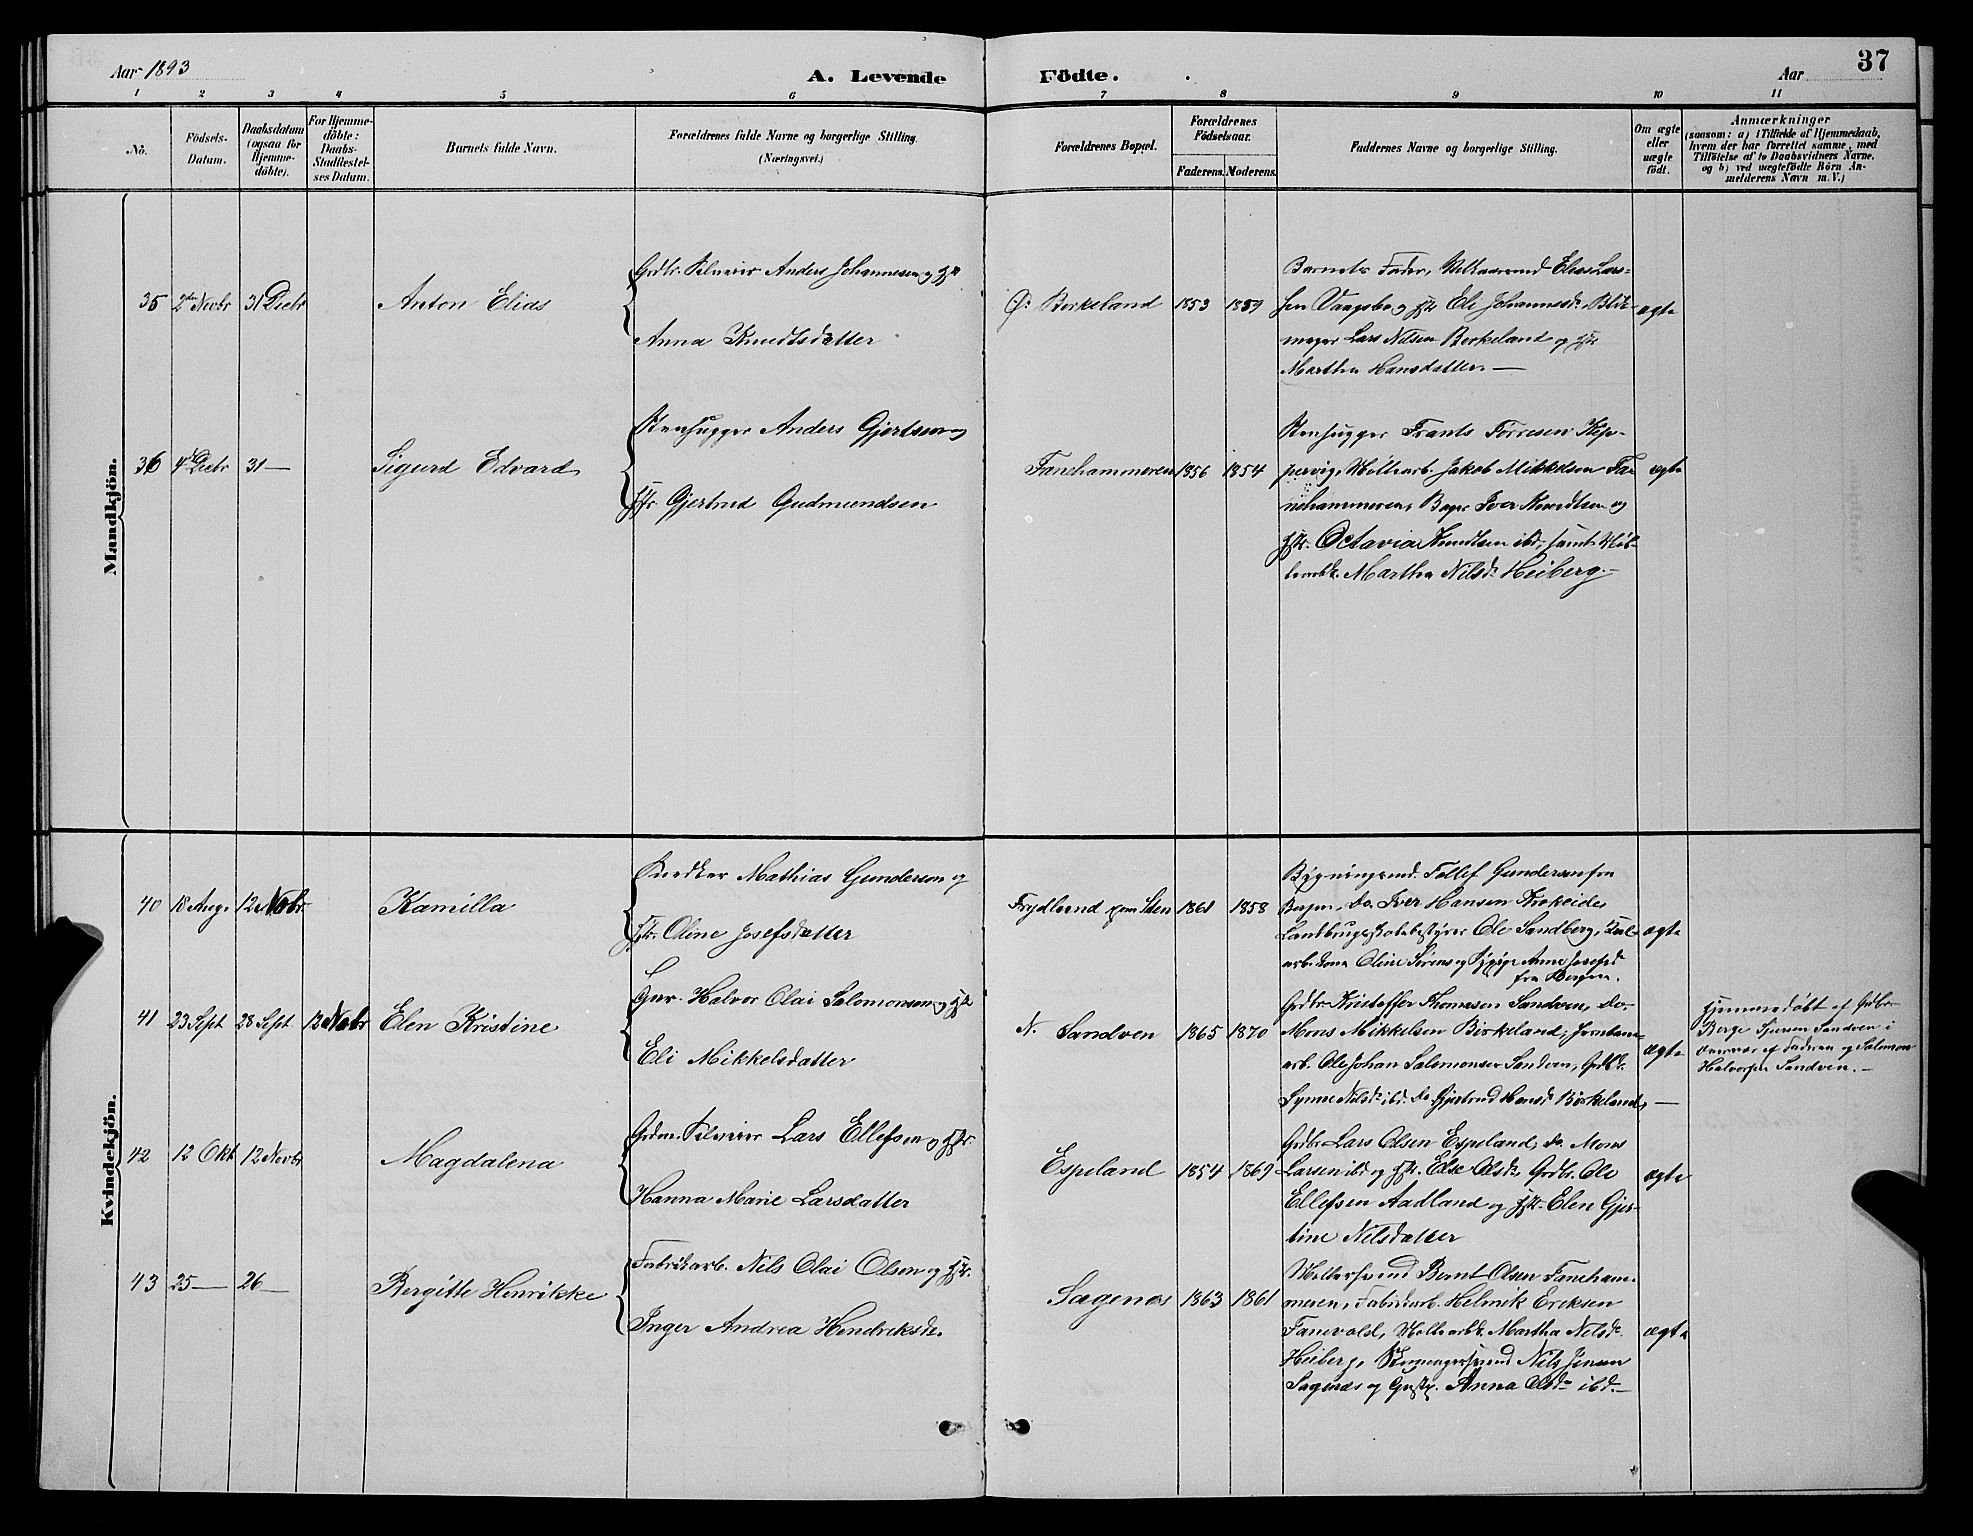 Aar 1893
A. Levende Födte.
Aar
37
1 2 3 4 5 6 7 8 9 10 11
No.
Födsels-
Datum.
Daabsdatum
(ogsaa for
Hjemme-
döbte).
For Hjemme-
döbte:
Daabs-
Stadfæstel-
ses Datum.
Barnets fulde Navn.
Forældrenes fulde Navne og borgerlige Stilling.
(Næringsvei.)
Forældrenes Bopæl.
Forældrenes
Födselsaar.
Faderens. Moderens.
Faddernes Navne og borgerlige Stilling.
Om ægte
eller
uægte
födt.
Anmærkninger
(saasom: a) i Tilfælde af Hjemmedaab,
hvem der har forrettet samme, med
Tilföielse af to Daabsvidners Navne,
og b) ved uægtefödte Börn An-
melderens Navn m. V.)
Mandkjön.
35
2den Novbr
31 Decbr
Anton Elias
Anders Johannesen og
Anna Knudtsdatter
Ø. Birkeland
1853
1859
Barnets Fader, Elias Lars-
sen Vaagsbø og Eli Johannesdr,
Lars Nilsen Birkeland og
Martha Hansdatter. —
ægte
36
4 Decbr
31 —
Sigurd Edvard
Stenhugger Anders Gjertsen og
Gjertrud Gudmundsen
Fanehammeren
1856
1854
Stenhugger Frants Torresen
Jakob Mikkelsen Fa-
nehammeren, Bager Iver Knudtsen og
Octavia Knudtsen ibd, samt
Martha Nilsdr Heiberg. —
ægte
Kvindekjön.
40
18 Aug.
12 Novbr
Kamilla
Snedker Mathias Gunderson og
Oline Josefsdatter
Frydlund
1861
1858
Bygningssnd. Tellef Gundersen fra
Bergen, do. Iver Hansen Krokeide,
Landbrugsskolebestyrer Ole Sandberg,
Oline og Pige Anne Josefsdr
fra Bergen.
ægte
41
23 Sept
28 Sept
12 Novbr
Elen Kristine
Halvor Olai Salomonsen og
Eli Mikkelsdatter
N. Sandven
1865
1870
Grdbr. Kristoffer Thomesen Sandven, do.
Mons Mikkelsen Birkeland, Jernbane-
arb. Ole Johan Salomonsen Sandven,
Synne Nilsdr ibd. do Gjertrud Hansdr Birkeland, —
ægte
Hjemmedøbt af Grdbr
Berge Sandven i
Overvær af Faderen og Salomon
Halvorsen Sandven. —
42
12 Okt
12 Novbr
Magdalena
Lars Ellefsen og
Hanna Marie Larsdatter
Espeland
1854
1869
Grdbr Lars Olsen Espeland, do. Mons
Larsen ibd og Else Olsdr, Grdbr. Ole
Ellefsen Aadland og Elen Gjer-
tine Nilsdatter
ægte
43
25 —
26 —
Bergitte Henrikke
Fabrikarb. Nils Olai Olson og
Inger Andrea Hendriksdr.
Sagenæs
1863
1861
Møllersvend Bernt Olsen Faneham-
meren, Fabrikarb. Helmik Eriksen
Fanevold, Martha Nilsdr
Heiberg, Nils Jensen
Sagenæs og Anna Olsdr ibd. —
ægte